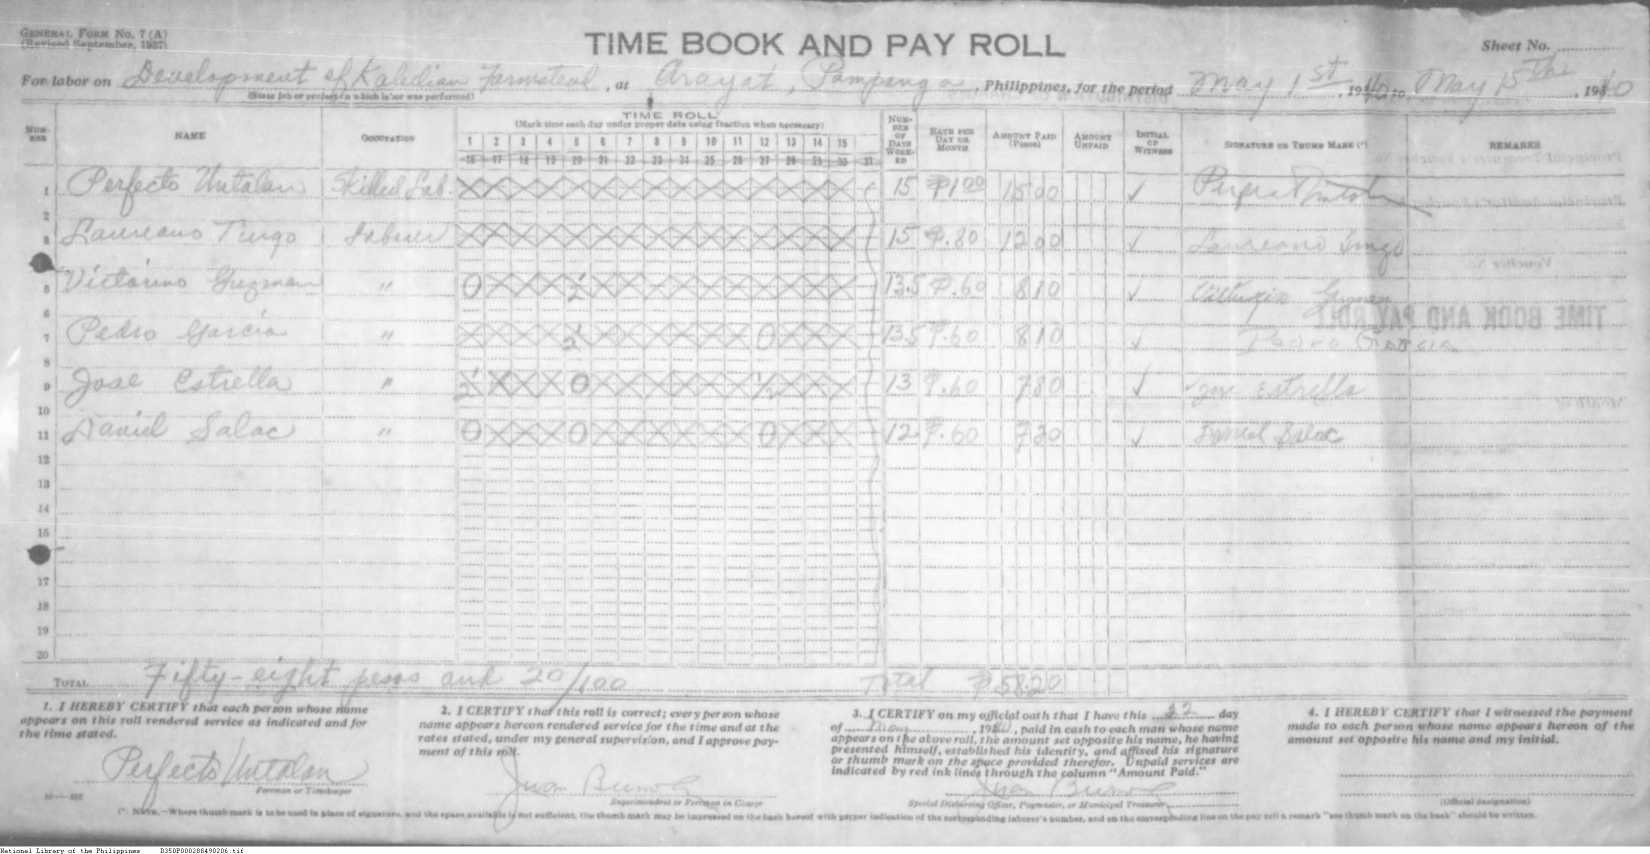 GENERAL FORM NO. 7 (A)
(Revised September, 1937)
TIME BOOK AND PAY ROLL
Sheet No.
For labor on Development of Kaledian Farmstead, at Arayat, Pampanga, Philippines, for the period May 1st, 1940 to May 15th, 1940
(State job or project on which labor was performed)
NUMBER NAME OCCUPATION TIME ROLL NUMBER OF DAYS WORKED RATE PER DAY OR MONTH AMOUNT PAID (Pesos) AMOUNT UNPAID INITIAL OF WITNESS SIGNATURE OR THUMB MARK (*) REMARKS
(Mark time each day under proper date using fraction when necessary)
1 2 3 4 5 6 7 8 9 10 11 12 13 14 15
16 17 18 19 20 21 22 23 24 25 26 27 28 29 30 31
1 Perfecto Untalan Skilled Lab. 15 ₱1.00 15 00 ✓
2
3 Laureano Tingo Laborer 15 ₱.80 12 00 ✓ Laureano Tingo
5 Victorino Guzman " 13.5 ₱.60 8 10 ✓ Guzman
6
7 Pedro Garcia " 13.5 ₱.60 8 10 ✓ Pedro Garcia
8
9 Jose Estrella " 13 ₱.60 7 80 ✓ Jose Estrella
10
11 Daniel Salac " 12 ₱.60 7 20 ✓ Daniel Salac
12
13
14
15
17
18
19
20
TOTAL Fifty-eight pesos and 20/100 Total ₱58.20
1. I HEREBY CERTIFY that each person whose name appears on this roll rendered service as indicated and for the time stated.
Perfecto Untalan
Foreman or Timekeeper
2. I CERTIFY that this roll is correct; every person whose name appears hereon rendered service for the time and at the rates stated, under my general supervision, and I approve payment of this roll.
Juan
Superintendent or Foreman in Charge
3. I CERTIFY on my official oath that I have this 22 day of May, 1940, paid in cash to each man whose name appears on the above roll, the amount set opposite his name, he having presented himself, established his identity, and affixed his signature or thumb mark on the space provided therefor. Unpaid services are indicated by red ink lines through the column "Amount Paid."
Juan
Special Disbursing Officer, Paymaster, or Municipal Treasurer
4. I HEREBY CERTIFY that I witnessed the payment made to each person whose name appears hereon of the amount set opposite his name and my initial.
(Official designation)
(*) NOTE.—Where thumb mark is to be used in place of signature, and the space available is not sufficient, the thumb mark may be impressed on the back hereof with proper indication of the corresponding laborer's number, and on the corresponding line on the pay roll a remark "see thumb mark on the back" should be written.
National Library of the Philippines D350P000288490206.tif